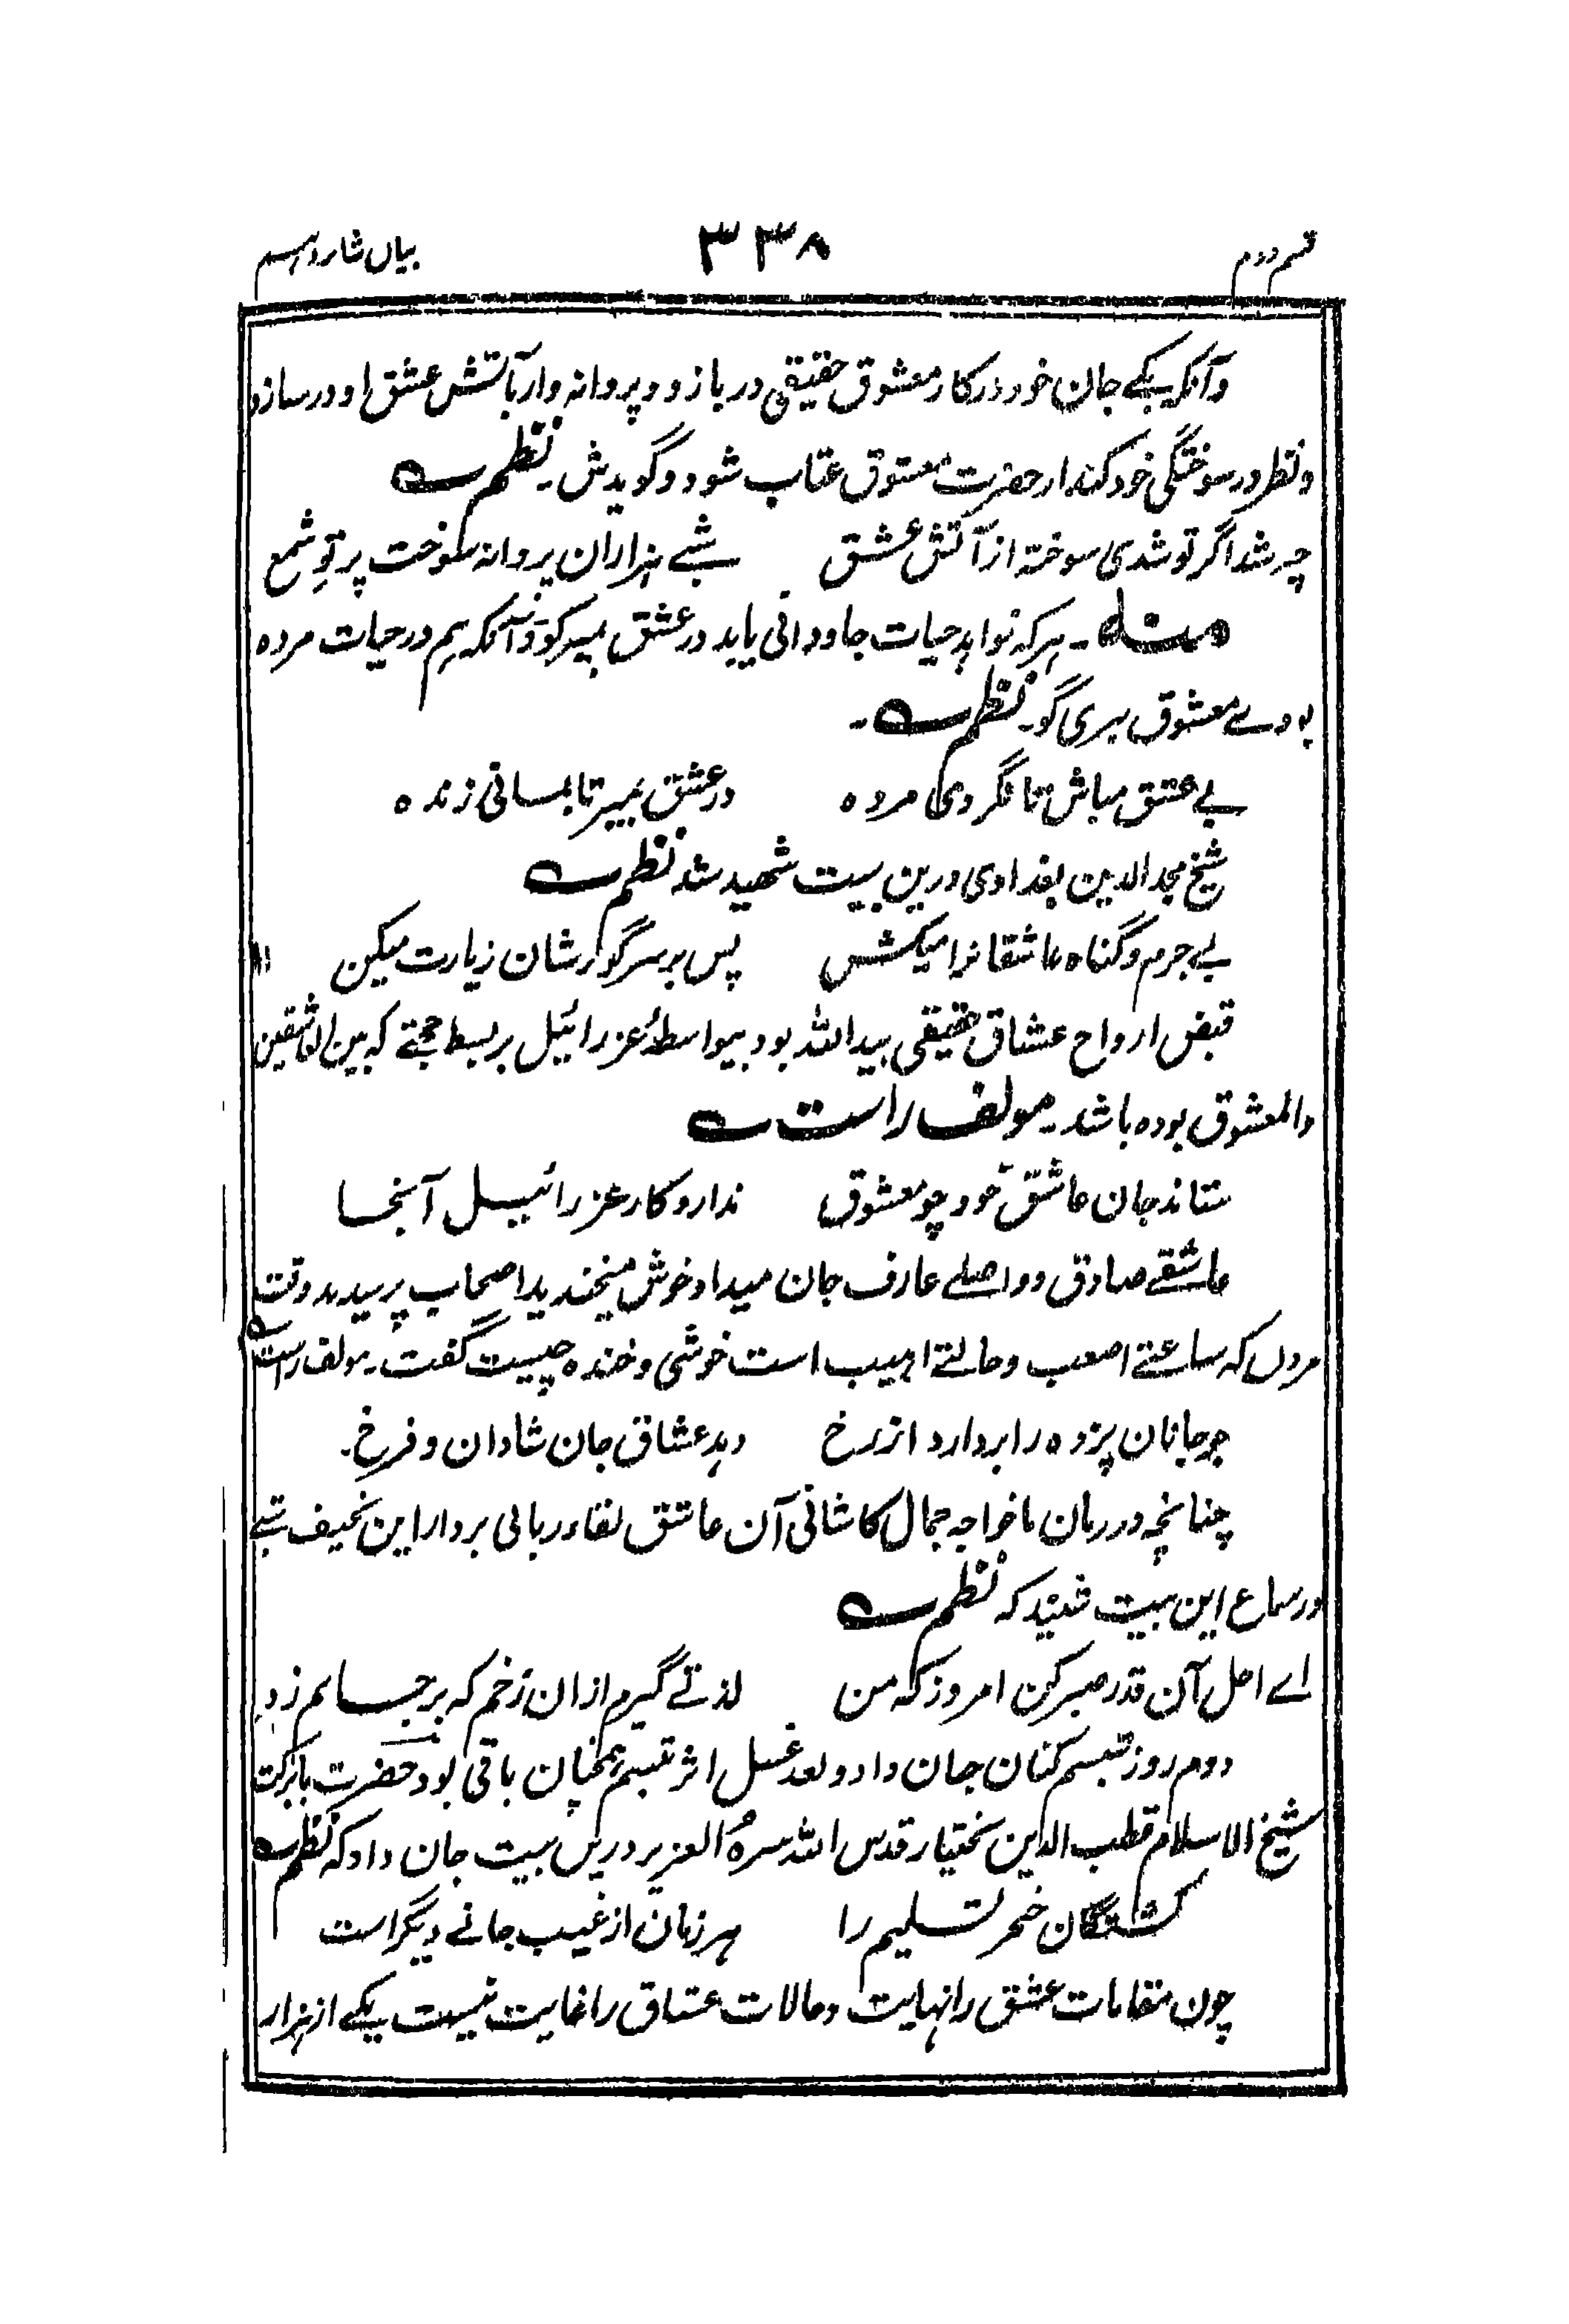 قسم دوم ۳۳۸ بیاں شاردہم
وآنکہ یکے جان خود در کار معشوق حقیقی دربازد و پروانہ وار بآتش عشق او درسازد
ونظر در سوختگی خود کند از حضرت معشوق عتاب شود و گویدش۔ نظم
چہ شد اگر تو شدی سوختہ از آتش عشق شبے ہزاران پروانہ سوخت پرتوِ شمع
منہ۔ ہر کہ خواہد حیات جاودانی یابد در عشق بمیر گو وآنکہ ہم در حیات مردہ
بوے معشوق بری گو۔ نظم۔
بے عشق مباش تا نگردی مردہ در عشق بمیر تا بمانی زندہ
شیخ مجد الدین بغدادی درین بیت شہید شد نظم
بے جرم وگناہ عاشقانرا میکشں پس بر سر گورشان زیارت میکن
قبض ارواح عشاق حقیقی بید اللہ بود بیواسطۂ عزرائیل بر بسط محبتے کہ بین العاشقین
والمعشوق بودہ باشد۔ مولف راست
ستاند جان عاشق خود چو معشوق ندارد کار عزرائیل آنجا
عاشقے صادق و واصلے عارف جان میداد خوش میخندید اصحاب پرسیدند وقت
مردں کہ ساعتے اصعب وحالتے اہیب است خوشی و خندہ چیست گفت۔ مولف راست
چو جانان پردہ را بردارد از رخ دہد عشاق جان شادان و فرخ۔
چنانچہ در زمان ما خواجہ جمال کاشانی آن عاشق لقاء ربانی بردار این نحیف شبے
در سماع این بیت شنید کہ نظم
اے اجل آن قدر صبر کن امروز کہ من لذتے گیرم ازان زخم کہ بر جانم زد
دوم روز تبسم کنان جان داد و بعد غسل اثر تبسم ہمچنان باقی بود حضرت بابرکت
شیخ الاسلام قطب الدین بختیار قدس اللہ سرہٗ العزیز دریں بیت جان داد کہ نظم
کشتگان خنجر تسلیم را ہر زمان از غیب جانے دیگر است
چون مقامات عشق را نہایت وحالات عشاق را غایت نیست یکے از ہزار